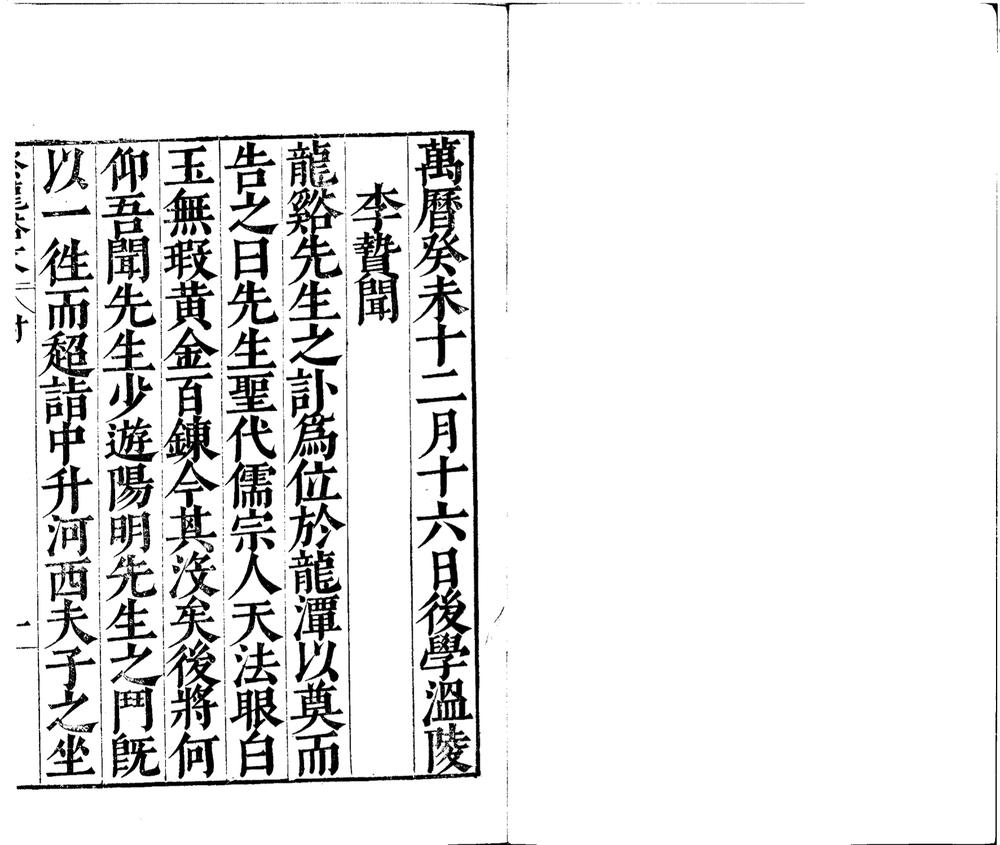 萬曆癸未十二月十六日後學溫陵
李贄聞
龍谿先生之訃爲位於龍潭以奠而
告之曰先生聖代儒宗人天法眼白
玉無瑕黃金百鍊今其沒矣後將何
仰吾聞先生少遊陽明先生之門旣
以一徃而超詣中升河西夫子之坐
附